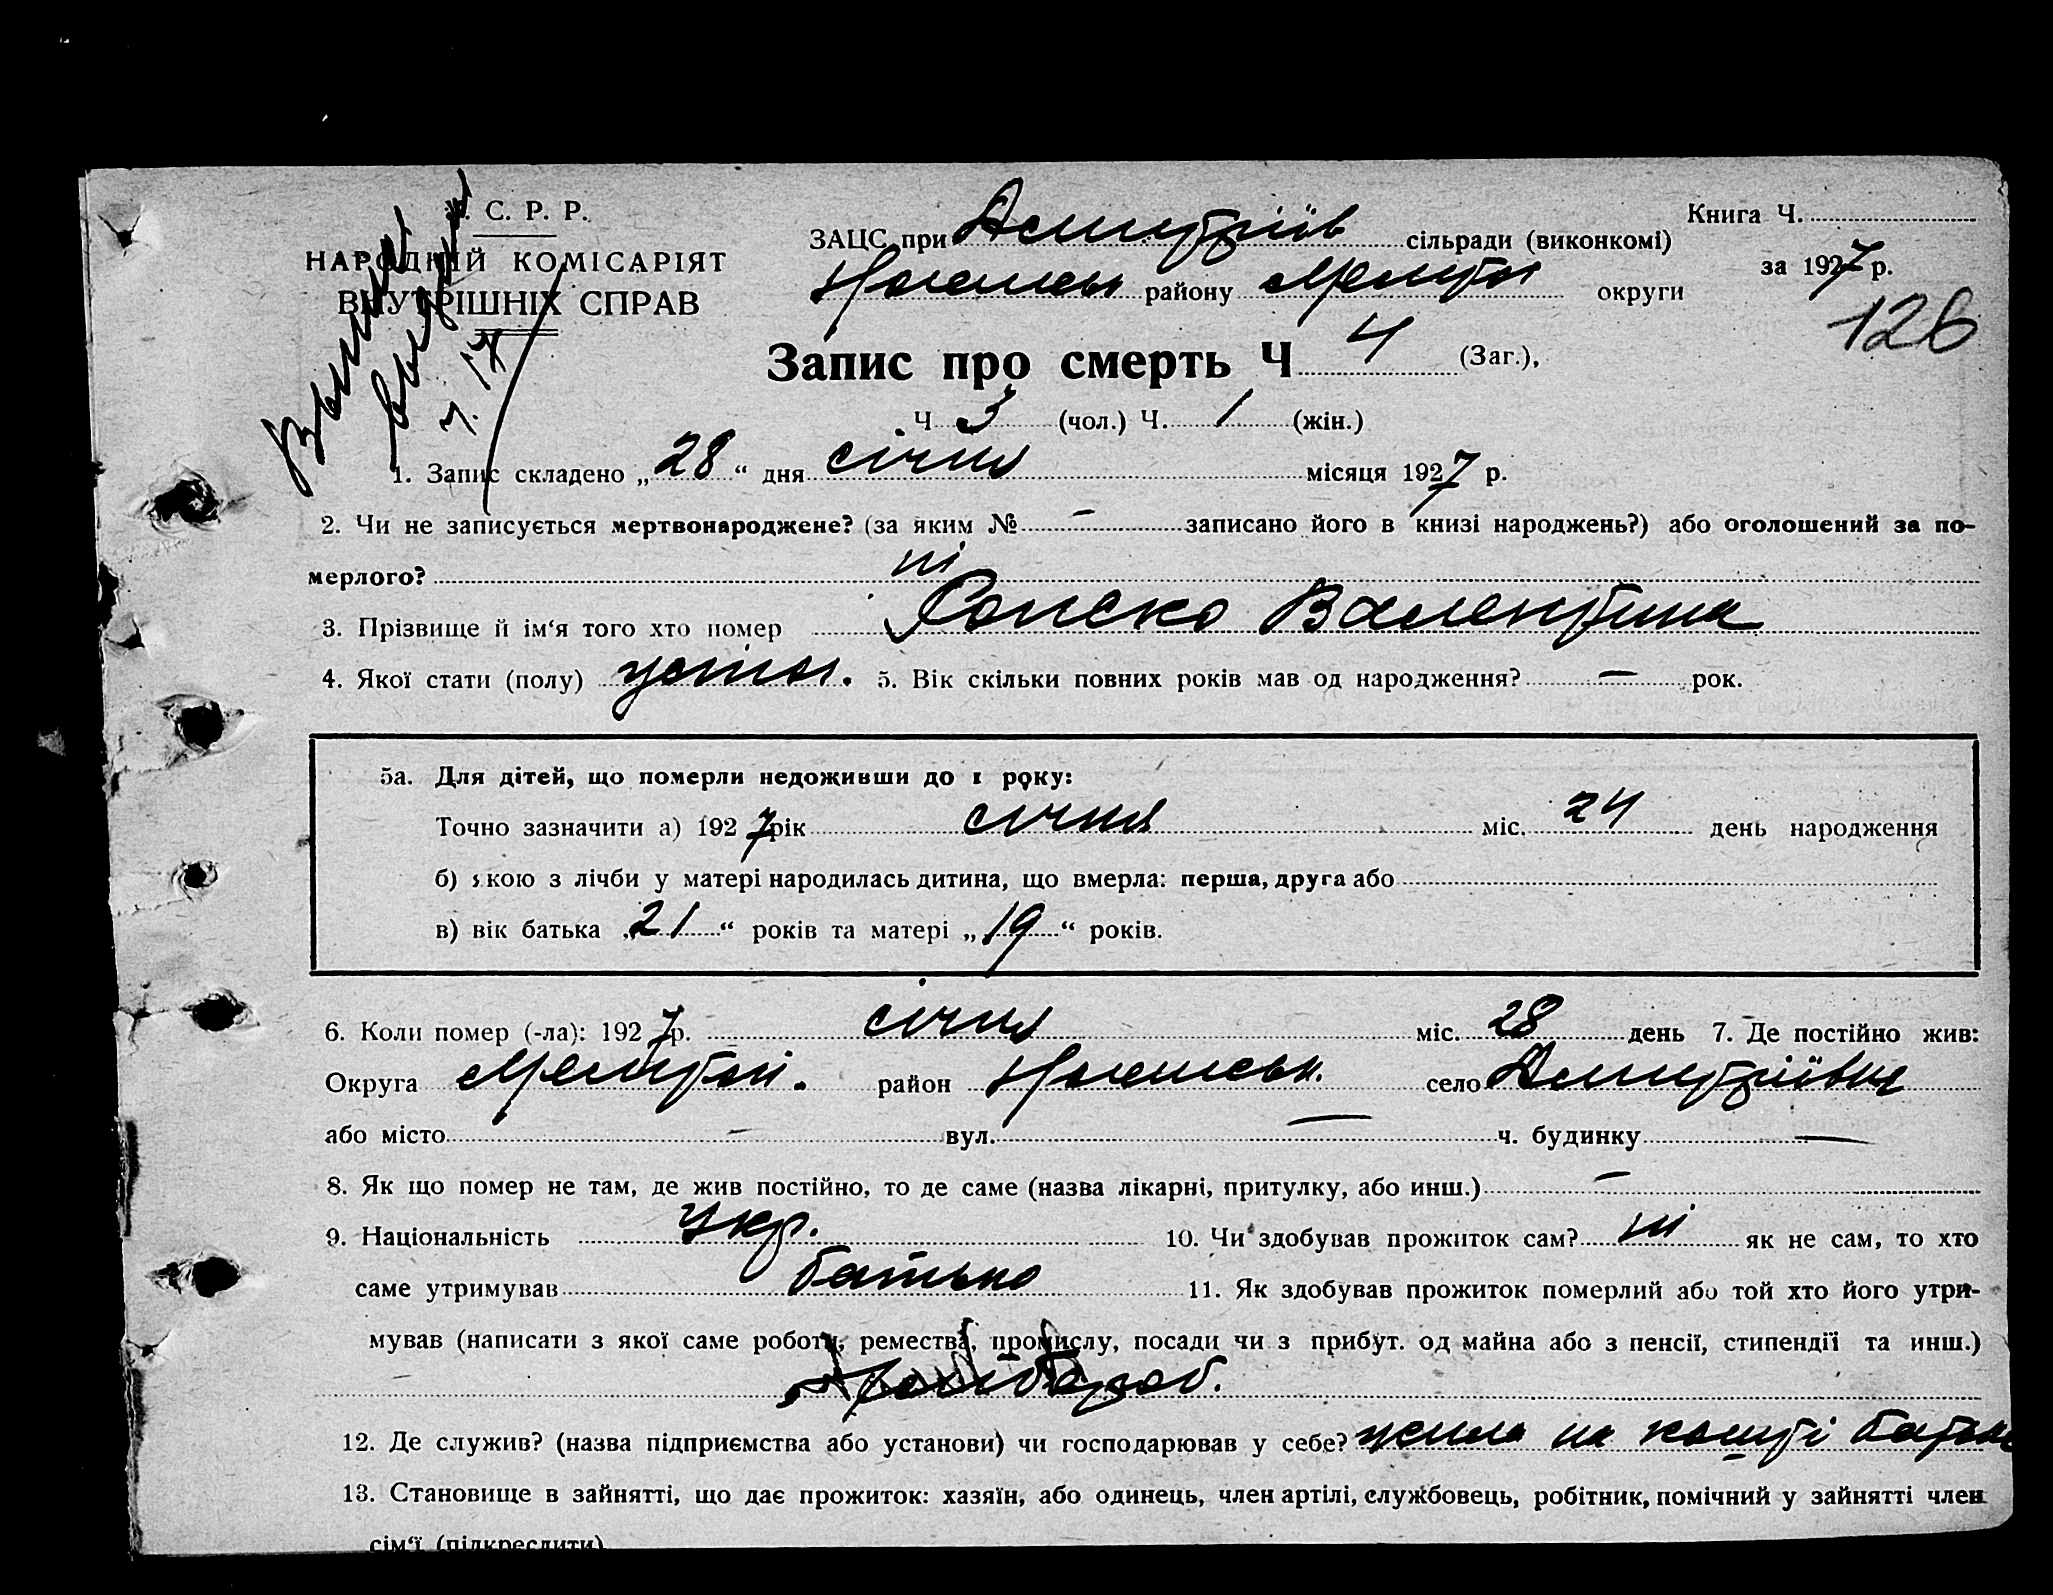 С. Р. Р.
НАРОДНІЙ КОМІСАРІЯТ
ВНУТРІШНІХ СПРАВ
Книга Ч.
ЗАЦС при Дмитріїв сільради (виконкомі)
за 1927 р.
району Мелітоп округи
126
Запис про смерть Ч 4 (Заг.),
Ч 3 (чол.) Ч. 1 (жін.)
ч. 17
1. Запис складено „28“ дня січня місяця 1927 р.
2. Чи не записується мертвонароджене? (за яким № – записано його в книзі народжень?) або оголошений за по-
мерлого? ні
3. Прізвище й ім‘я того хто помер Валентина
4. Якої стати (полу) жіноч. 5. Вік скільки повних років мав од народження? – рок.
5а. Для дітей, що померли недоживши до 1 року:
Точно зазначити а) 1927 рік січня міс. 24 день народження
б) якою з лічби у матері народилась дитина, що вмерла: перша, друга або
в) вік батька „21“ років та матері „19“ років.
6. Коли помер (-ла): 1927 р. січня міс. 28 день 7. Де постійно жив:
Округа Мелітоп. район село Дмитріївка
або місто – вул. – ч. будинку –
8. Як що помер не там, де жив постійно, то де саме (назва лікарні, притулку, або инш.) –
9. Національність Укр. 10. Чи здобував прожиток сам? ні як не сам, то хто
саме утримував батько 11. Як здобував прожиток померлий або той хто його утри-
мував (написати з якої саме роботи, ремества, промислу, посади чи з прибут. од майна або з пенсії, стипендії та инш.)
12. Де служив? (назва підприємства або установи) чи господарював у себе? жила на кошті батька
13. Становище в зайнятті, що дає прожиток: хазяїн, або одинець, член артілі, службовець, робітник, помічний у зайнятті член
сім‘ї (підкреслити)